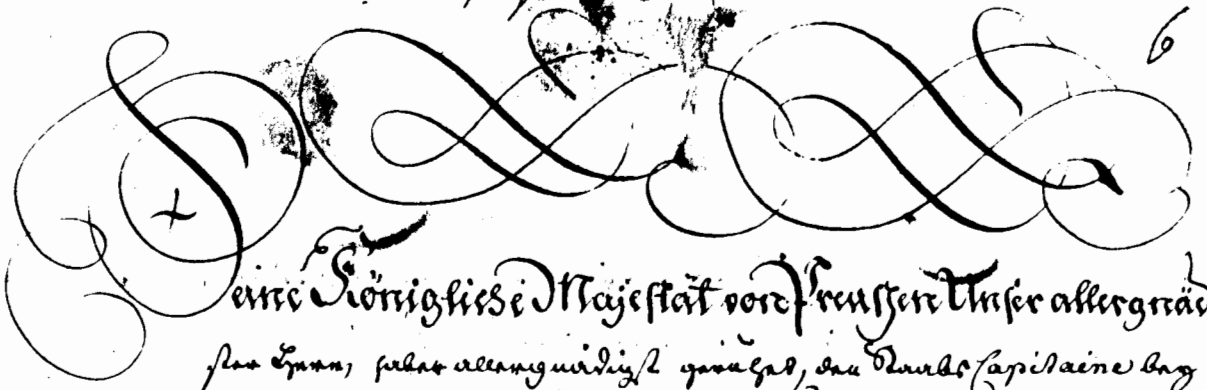 6
Seine Königliche Majestät von Preussen Unser allergnädig
ster Herr, haben allergnädigst geruhet, den Staabs Capitaine bey